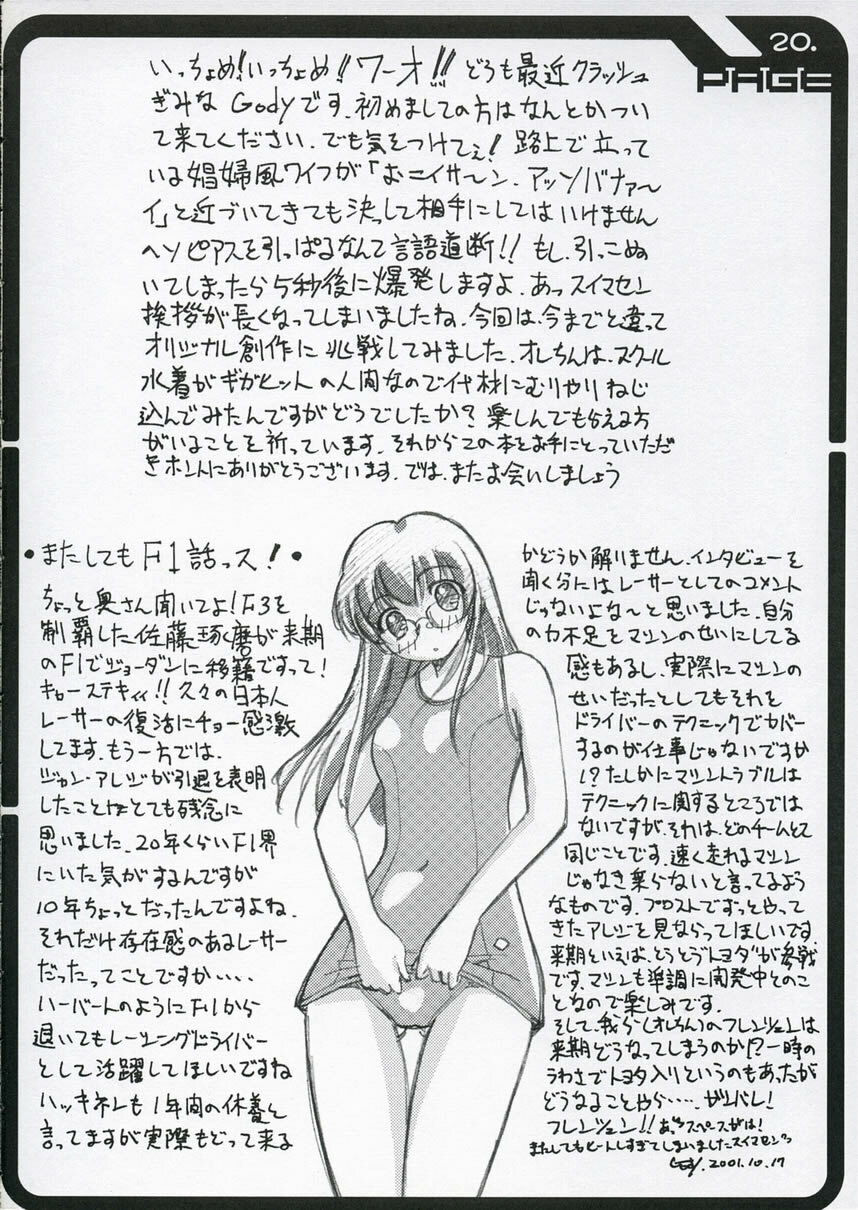 20.
PAGE
いっちょめ!いっちょめ!!ワーオ!!!どうも最近クラッシュ
ぎみなGodyです.初めましての方はなんとかつい
て来てください.でも気をつけてぇ!路上で立って
いる娼婦風ワイフが「おニイサ〜ン.アッソバナァ〜
イ」と近づいてきても決って相手にしてはいけません
ヘソピアスを引っぱるなんて言語道断!!もし.引っこぬ
いてしまったら5秒後に爆発しますよ.あっスイマセン
挨拶が長くなってしまいましたね.今回は.今までと違って
オリジナル創作に挑戦してみました.オレちんは.スクール
水着がギガヒットの人間なので代材にむりやりねじ
込んでみたんですがどうでしたか?楽しんでもらえる方
がいることを祈っています.それからこの本をお手にとっていただ
きホントにありがとうございます.では.またお会いしましょう
・またしてもF1話っス!・
ちょっと奥さん聞いてよ!F3を
制覇した佐藤琢磨が来期
のF1でジョーダンに移籍ですって!
キャーステキィィ!!久々の日本人
レーサーの復活にチョー感激
してます.もう一方では.
ジャン・アレジが引退を表明
したことはとても残念に
思いました.20年くらいF1界
にいた気がするんですが
10年ちょっとだったんですよね.
それだけ存在感のあるレーサー
だったってことですか‥‥
ハーバートのようにF1から
退いてもレーシングドライバー
として活躍してほしいですね
ハッキネンも1年間の休養と
言ってますが実際もどって来る
かどうか解りません.インタビューを
聞く分にはレーサーとしてのコメント
じゃないよな〜と思いました.自分
の力不足をマシンのせいにしてる
感もあるし.実際にマシンの
せいだったとしてもそれを
ドライバーのテクニックでカバー
するのが仕事じゃないですか
!?たしかにマシントラブルは
テクニックに関するところでは
ないですが.それは.どのチームとて
同じことです.速く走れるマシン
じゃなき乗らないと言ってるよう
なものです.プロストでずっとやって
きたアレジを見ならってほしいです.
来期といえば.とうとうトヨダが参戦
です.マシンも準調に開発中とのこ
となので楽しみです.
そして.我ら(オレちん)のフレンツェンは
来期どうなってしまうのか!?一時の
うわさでトヨタ入りというのもあったが
どうなることやら‥‥.ガンバレ!
フレンツェン!!あっスペースがは!
またしてもヒートしすぎてしまいましたスイマセン
Gody.2001.10.17